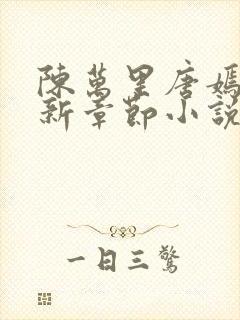 陳萬里唐嫣
新章節小說
一日三驚